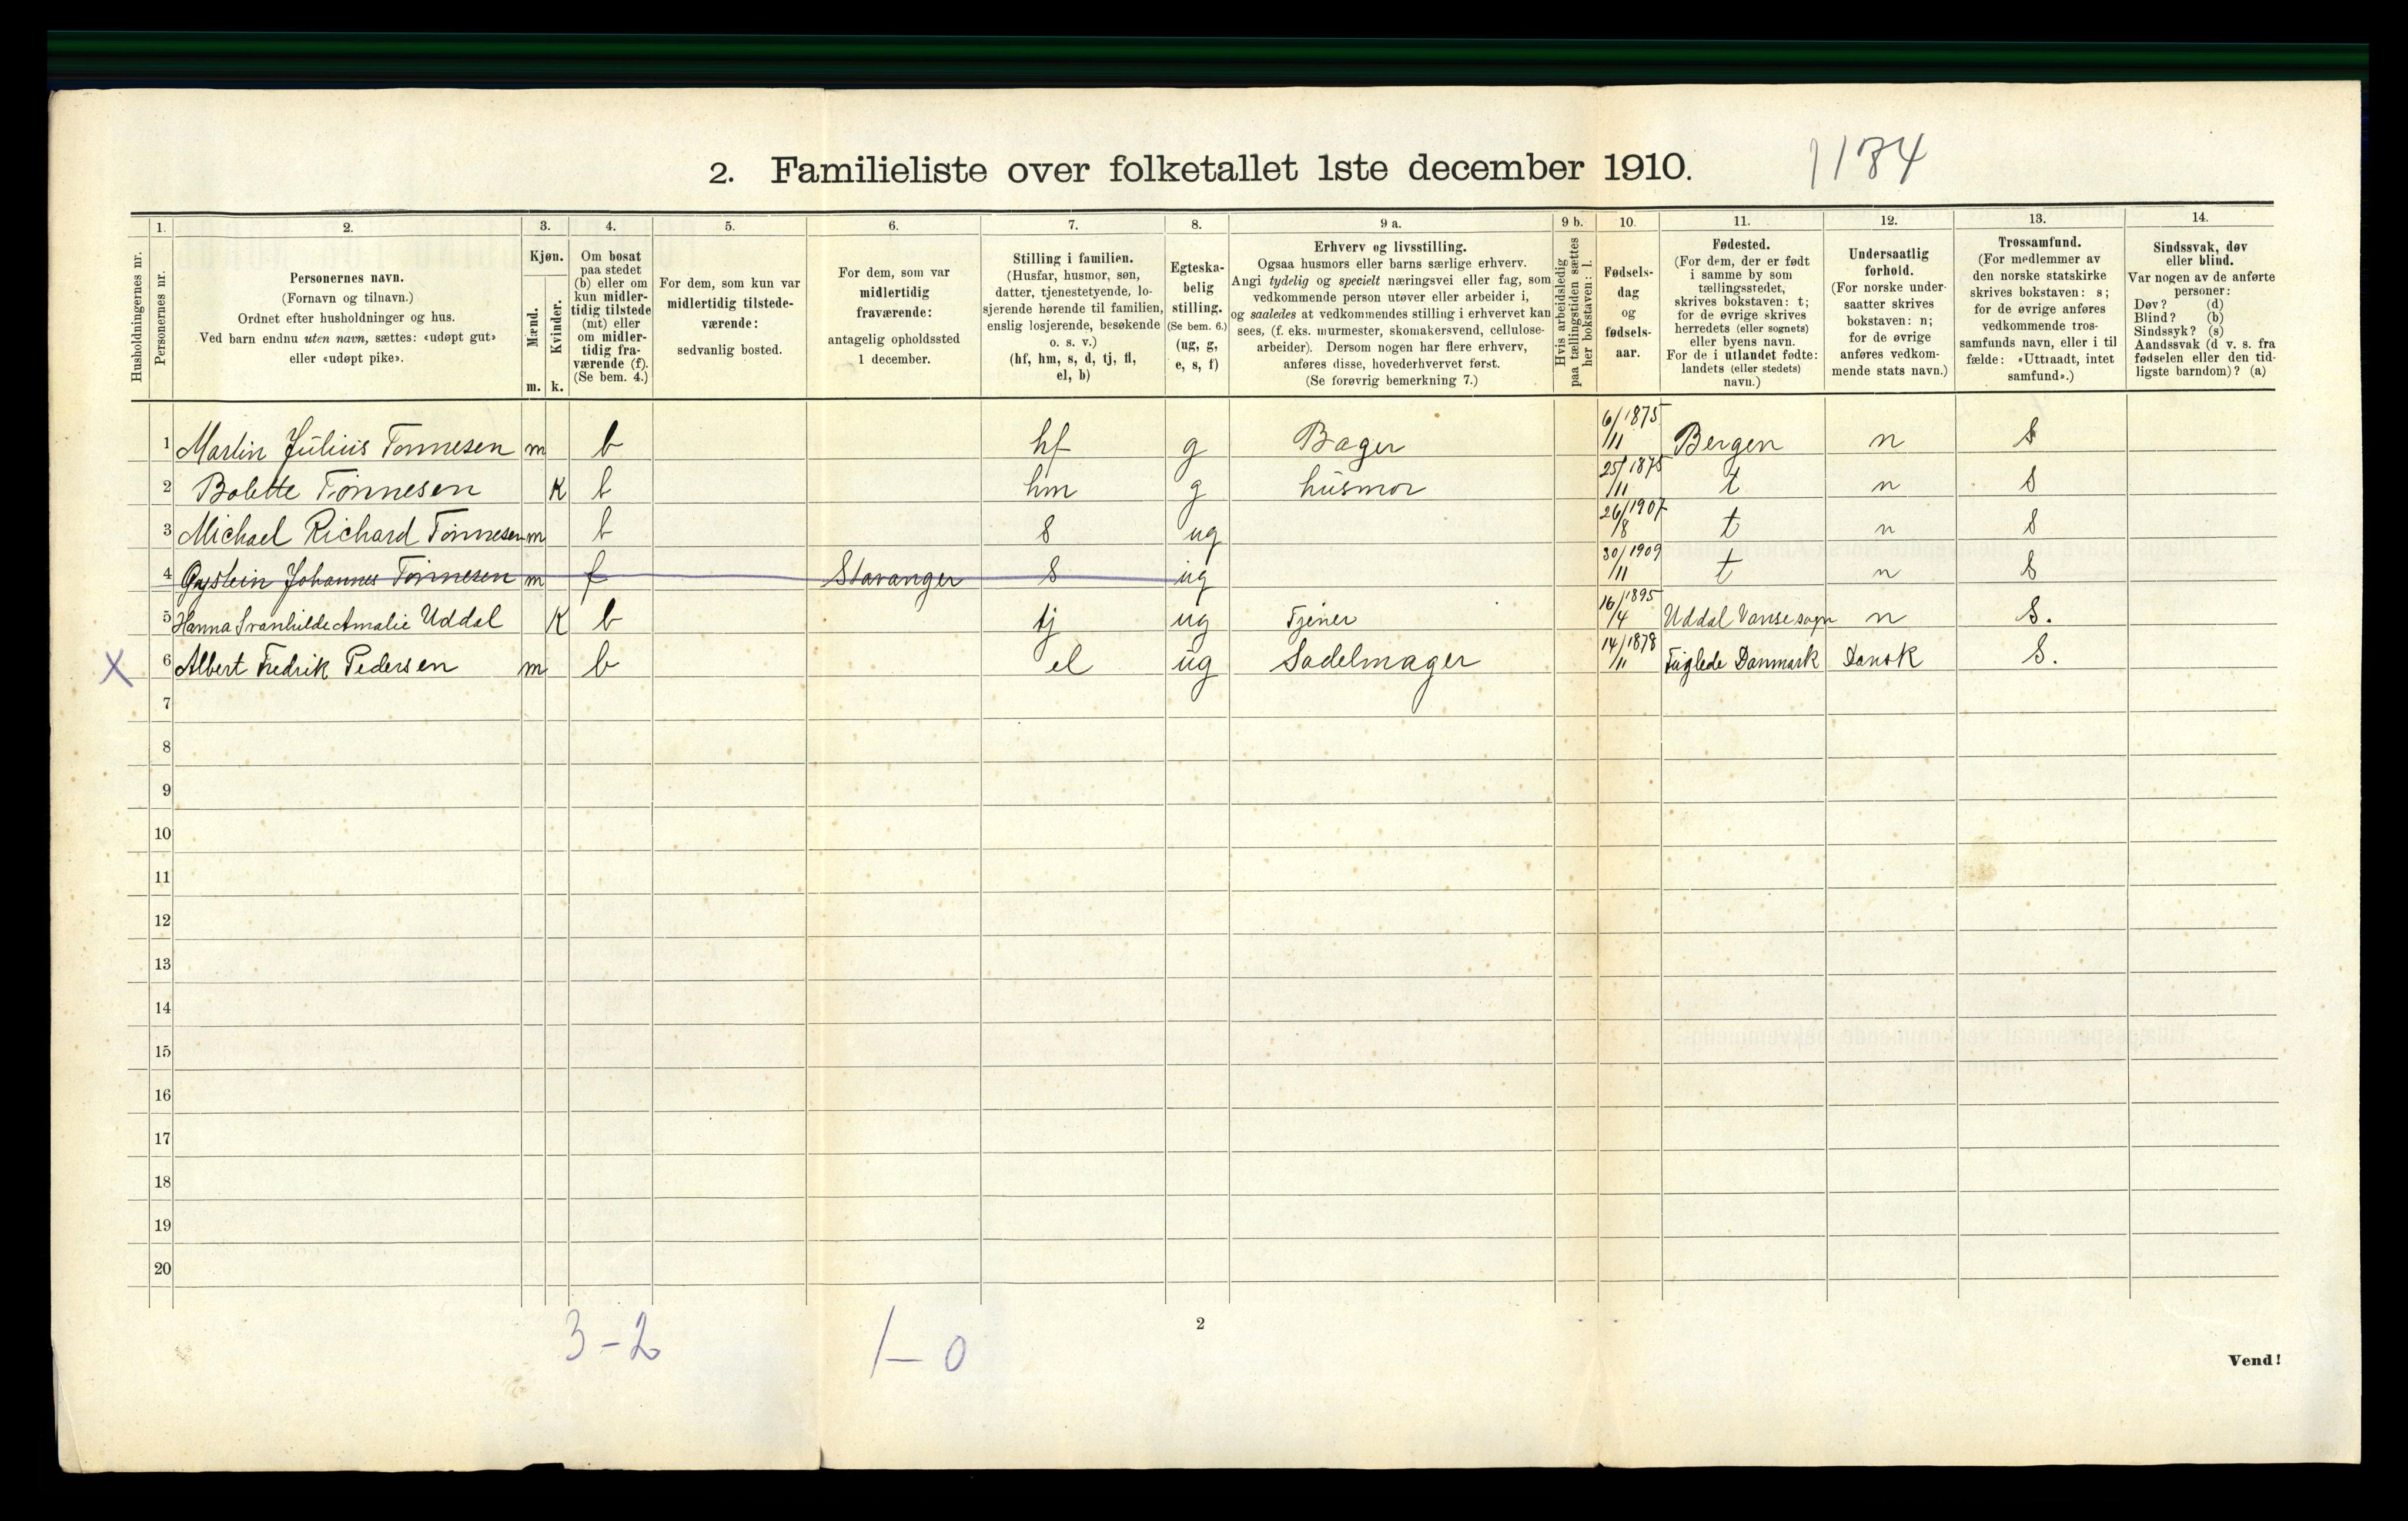 2. Familieliste over folketallet 1ste december 1910. 1184
Husholdningernes nr.
1. Personernes nr.
2. Personernes navn.
(Fornavn og tilnavn.)
Ordnet efter husholdninger og hus.
Ved barn endnu uten navn, sættes: «udøpt gut»
eller «udøpt pike».
3. Kjøn.
Mænd. m.
Kvinder. k.
4. Om bosat
paa stedet
(b) eller om
kun midler-
tidig tilstede
(mt) eller
om midler-
tidig fra-
værende (f).
(Se bem. 4.)
5. For dem, som kun var
midlertidig tilstede-
værende:
sedvanlig bosted.
6. For dem, som var
midlertidig
fraværende:
antagelig opholdssted
1 december.
7. Stilling i familien.
(Husfar, husmor, søn,
datter, tjenestetyende, lo-
sjerende hørende til familien,
enslig losjerende, besøkende
o. s. v.)
(hf, hm, s, d, tj, fl,
el, b)
8. Egteska-
belig
stilling.
(Se bem. 6.)
(ug, g,
e, s, f)
9 a. Erhverv og livsstilling.
Ogsaa husmors eller barns særlige erhverv.
Angi tydelig og specielt næringsvei eller fag, som
vedkommende person utøver eller arbeider i,
og saaledes at vedkommendes stilling i erhvervet kan
sees, (f. eks. murmester, skomakersvend, cellulose-
arbeider). Dersom nogen har flere erhverv,
anføres disse, hovederhvervet først.
(Se forøvrig bemerkning 7.)
9 b. Hvis arbeidsledig
paa tællingstiden sættes
her bokstaven: l.
10. Fødsels-
dag
og
fødsels-
aar.
11. Fødested.
(For dem, der er født
i samme by som
tællingsstedet,
skrives bokstaven: t;
for de øvrige skrives
herredets (eller sognets)
eller byens navn.
For de i utlandet fødte:
landets (eller stedets)
navn.)
12. Undersaatlig
forhold.
(For norske under-
saatter skrives
bokstaven: n;
for de øvrige
anføres vedkom-
mende stats navn.)
13. Trossamfund.
(For medlemmer av
den norske statskirke
skrives bokstaven: s;
for de øvrige anføres
vedkommende tros-
samfunds navn, eller i til
fælde: «Uttraadt, intet
samfund».)
14. Sindssvak, døv
eller blind.
Var nogen av de anførte
personer:
Døv? (d)
Blind? (b)
Sindssyk? (s)
Aandssvak (d v. s. fra
fødselen eller den tid-
ligste barndom)? (a)
1 Martin Julius Tønnesen m b hf g Bager 6/11 1875 Bergen n s
2 Bolette Tønnesen K b hm g husmor 25/11 1875 t n s
3 Michael Richard Tønnesen m b s ug 26/8 1907 t n s
4 Øystein Johannes Tønnesen m f Stavanger s ug 30/11 1909 t n s
5 Hanna Svanhilde Amalie Uddal K b tj ug Tjener 16/4 1895 Uddal Vanse sogn n S.
X 6 Albert Fredrik Pedersen m b el ug Sadelmager 14/11 1878 Fuglede Danmark Dansk S.
7
8
9
10
11
12
13
14
15
16
17
18
19
20
3-2 1-0
2
Vend!